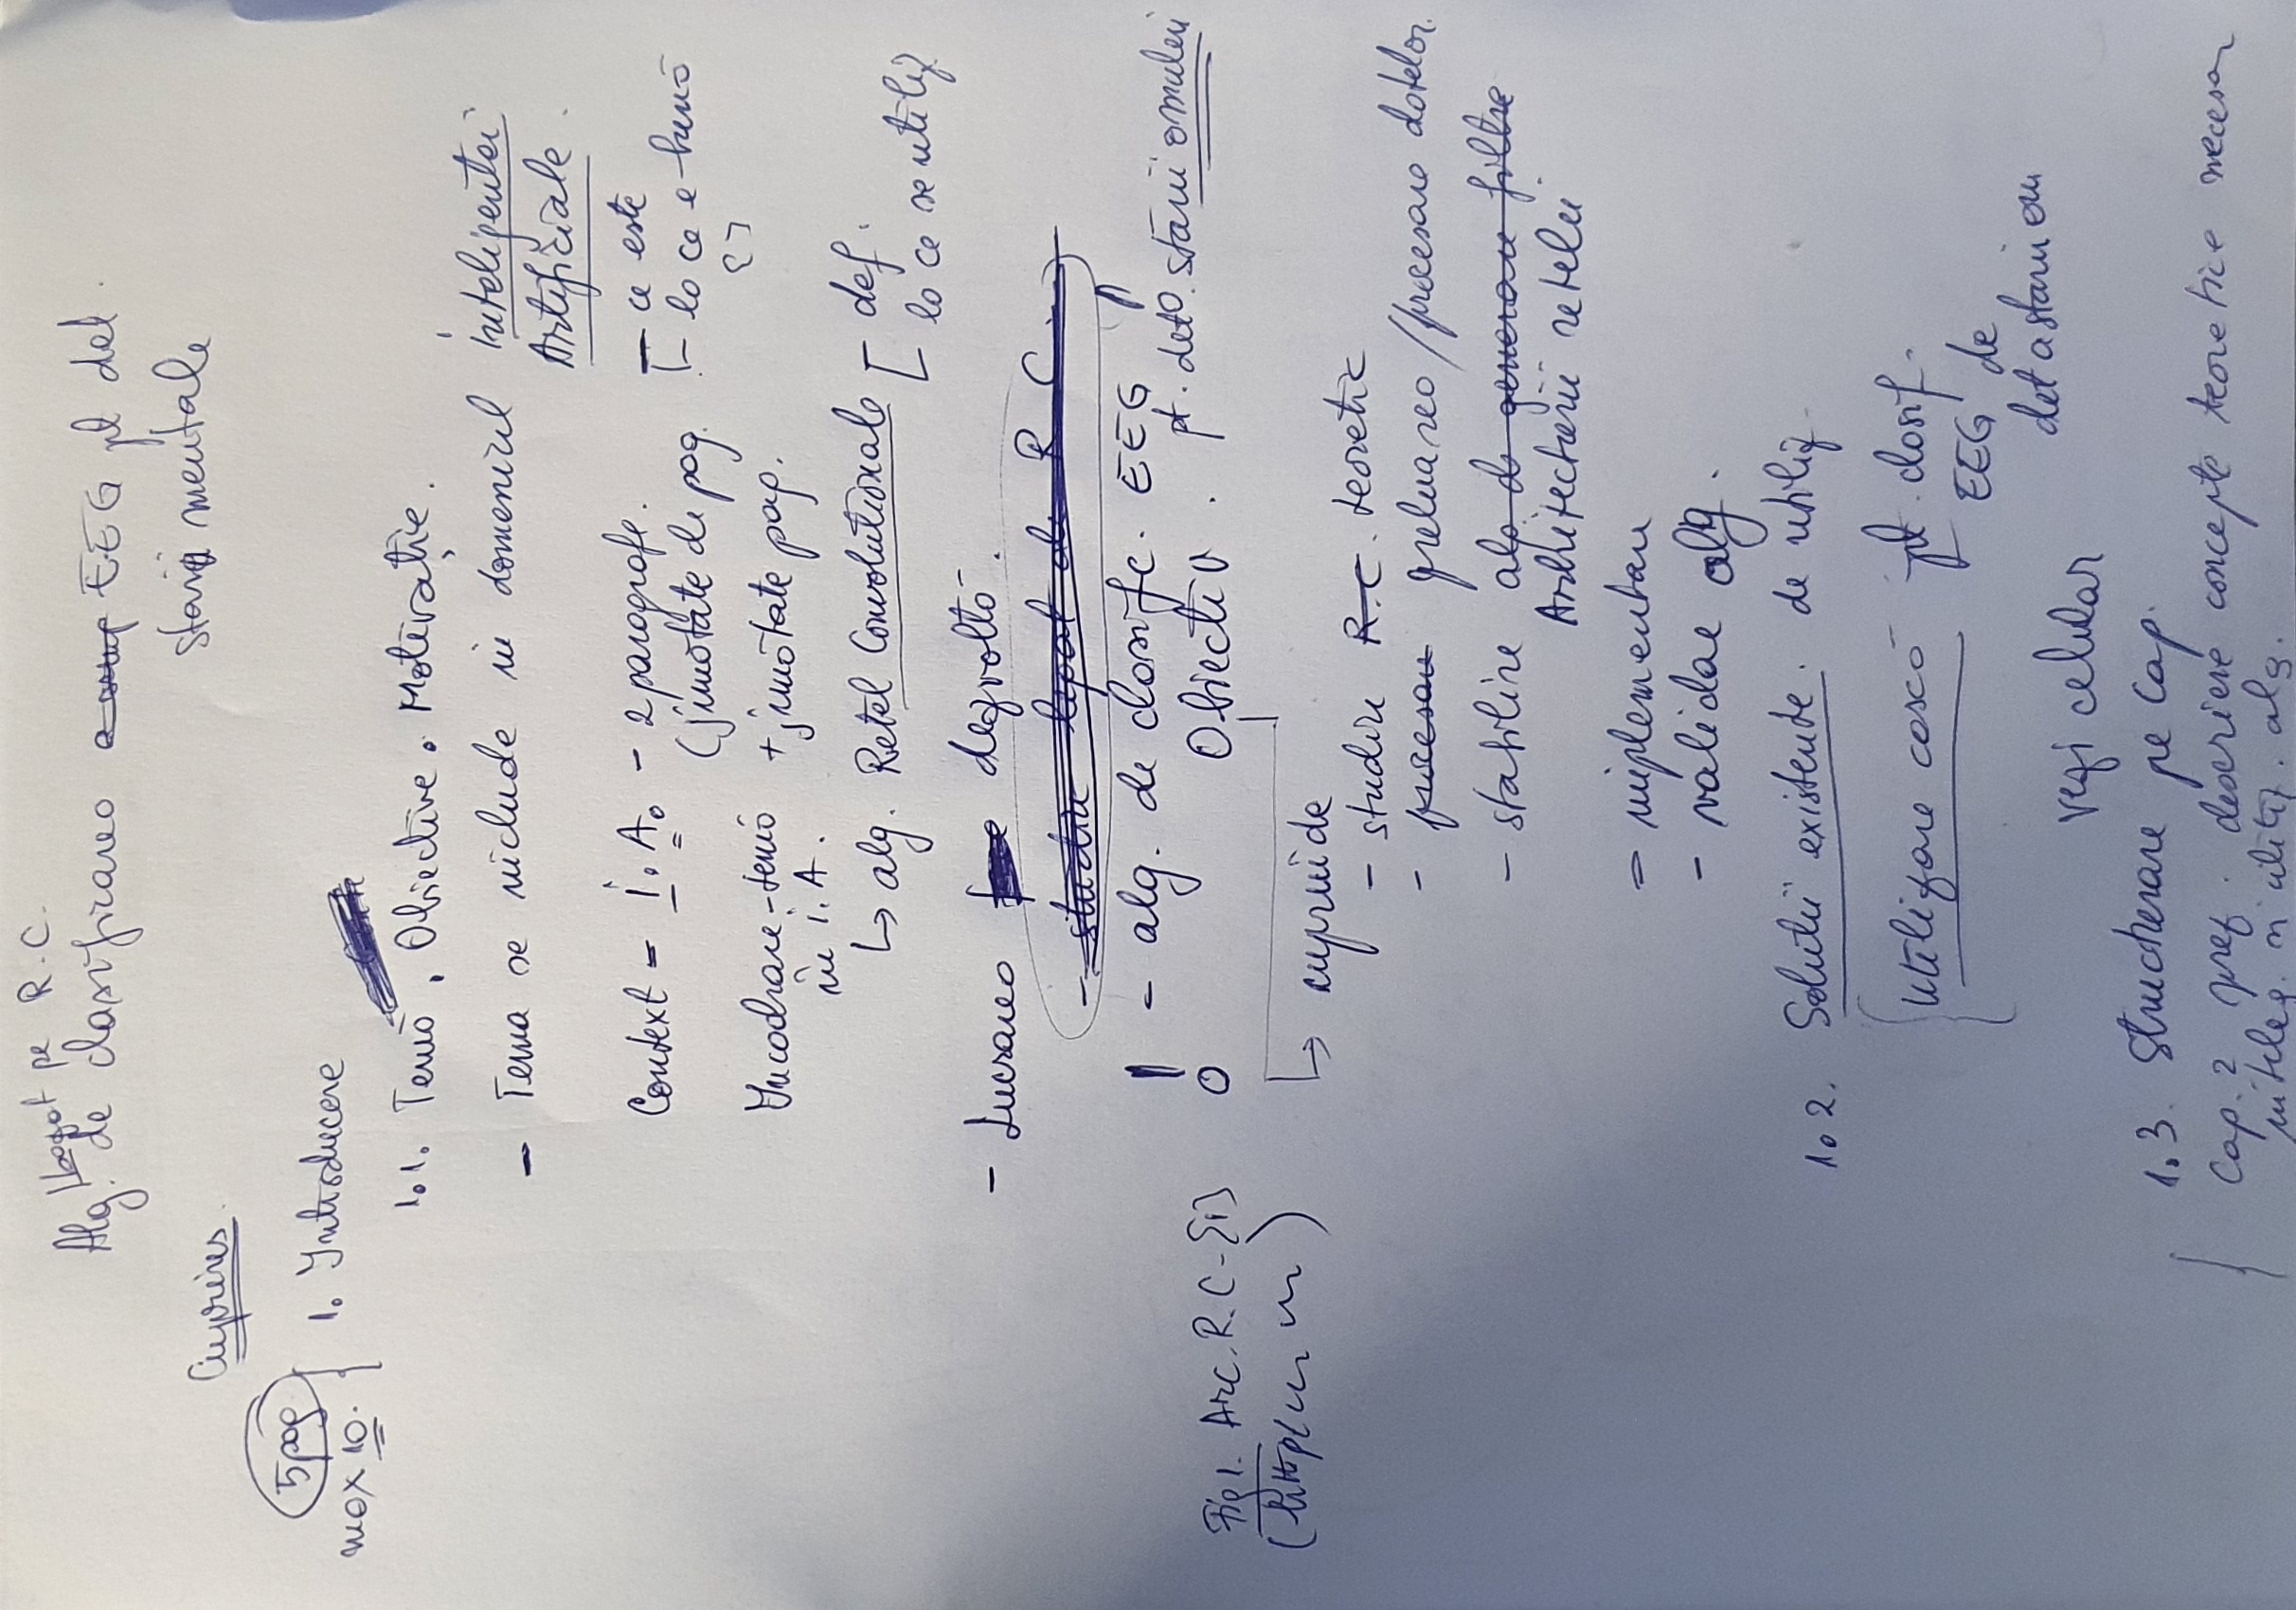 bazat pe R.C.
Alg. de clasificarea EEG pt det.
stării mentale
Cuprins.
5 pag
max 10.
1. Introducere
1.1. Temă. Obiective. Motivație.
- Tema se include în domeniul Inteligentei
Artificiale.
Context - I.A. - 2 paragrafe. - ce este
(jumătate de pag. - la ce e bună
[ ]
Incadrare temă + jumătate pag.
în I.A.
↳ alg. Retel Convolutionale - def.
la ce se utiliz
- Lucrarea dezvoltă.
- studiu legat de R C
- alg. de clasific. EEG
pt. det. stării omului
Obiectiv.
Fig 1. Arc. R.C - [1]
(http
↳ cuprinde
- studiu R.C. teoretic
- procesare preluarea / procesare datelor.
- stabilire alg de generare filtre
Arhitecturii retelei
- implementare
- validae alg.
1.2. Solutii existente. de utiliz
Utilizare cască pt. clasif.
EEG de
det a starii om
vezi celular
1.3. Structurare pe Cap.
Cap. 2 prez. descriere concepte teoretice necesar
inteleg. si utiliz. alg.